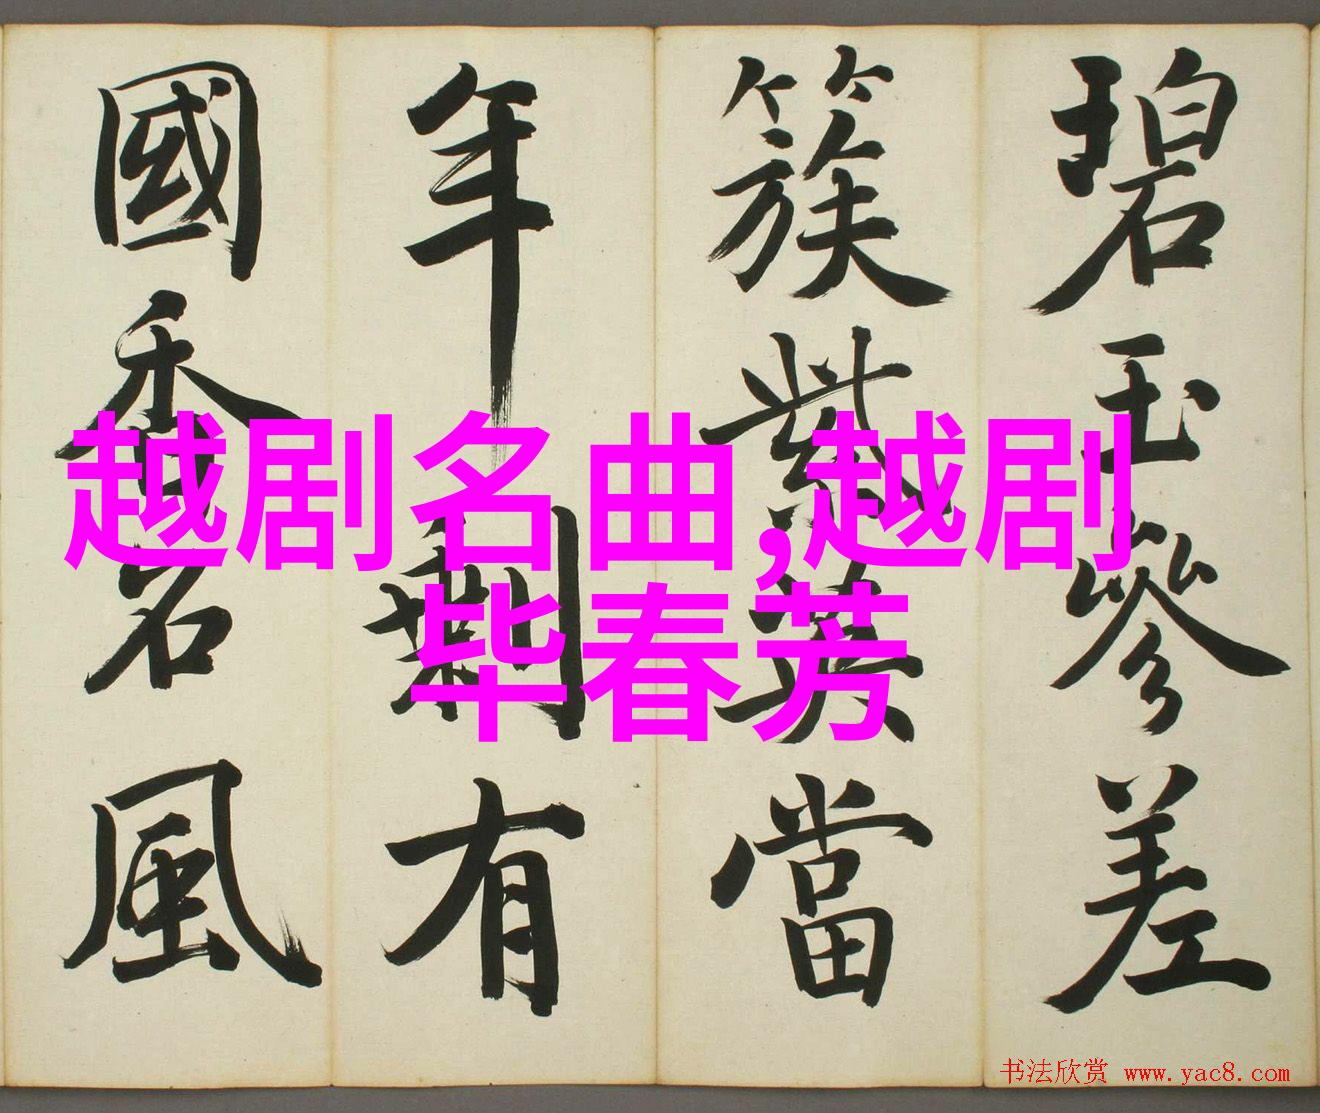 碧玉參差
簇紫英當
年剩有
國香名風
越剧名曲,越剧
毕春芳
书法欣赏 www.yac8.com